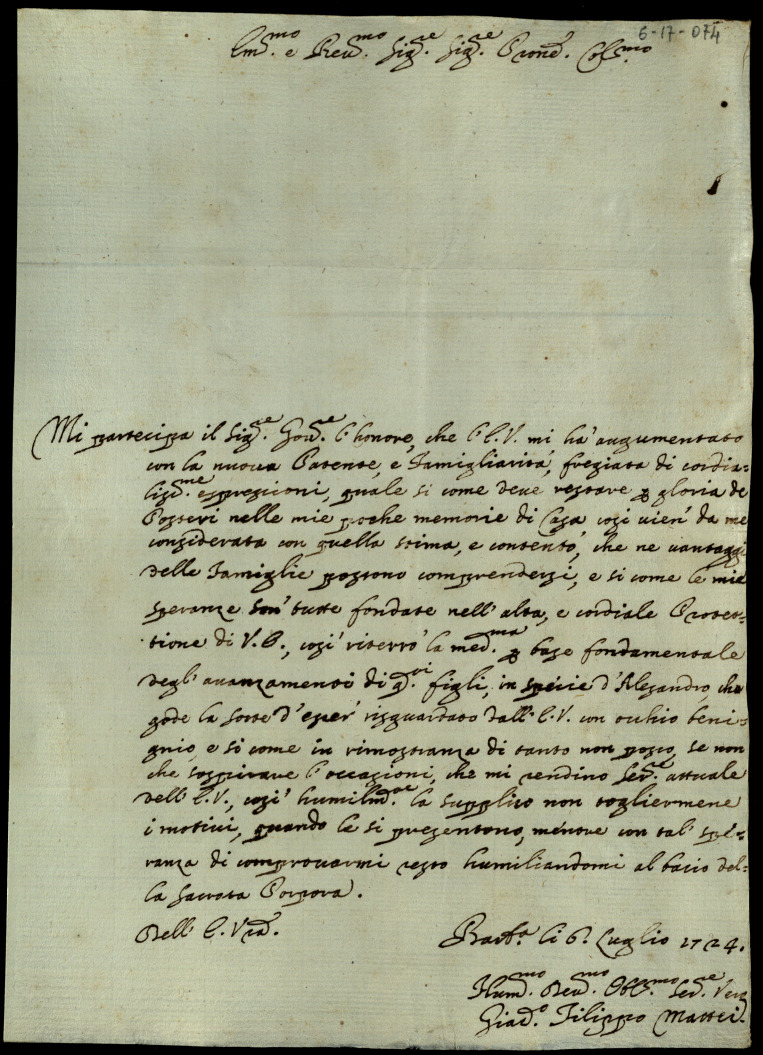 6-17-074
Em.mo e Reu.mo Sig.re Sig.re Prone. Col.mo
Mi partecipa il Sig.re Gou.re l'honore, che l'E.V. mi hà augumentato
con la nuoua Patente, e famigliarità, fregiata di cordia=
liss.me espressioni, quale si come deue restare p gloria de
Posteri nelle mie poche memorie di Casa così uien' da me
considerata con quella stima, e contento, che ne uantaggi
delle famiglie possono comprendersi, e si come le mie
speranze son' tutte fondate nell'alta, e cordiale Protet=
tione di V.E., così riterrò la med.ma p base fondamentale
degl'auanzamenti di q.sti figli, in specie d'Alesandro, che
gode la sorte d'esser' risguardato dall'E.V. con occhio beni=
gnio, e si come in rimostranza di tanto non posso, se non
che sospirare l'occasioni, che mi rendino Ser.re attuale
dell'E.V., così humilm.te la supplico non togliermene
i motiui, quando le si presentono, mentre con tal' spe=
ranza di comprouarmi resto humiliandomi al bacio del=
la Sacrata Porpora.
Dell'E.Vra.
li 6. Luglio 1724.
Hum.mo Deu.mo Obl.mo Ser.re Vero
Filippo Mattei.